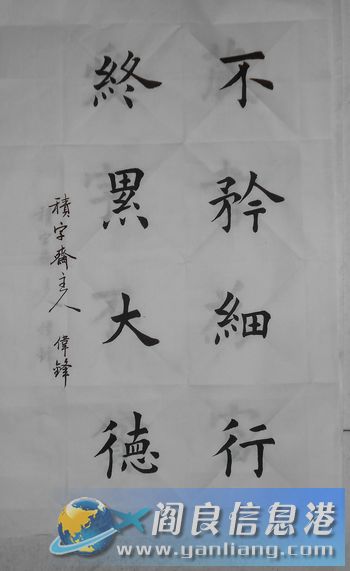 不矜細行
終累大德
積字齋主人 偉鋒
阎良信息港
www.yanliang.com